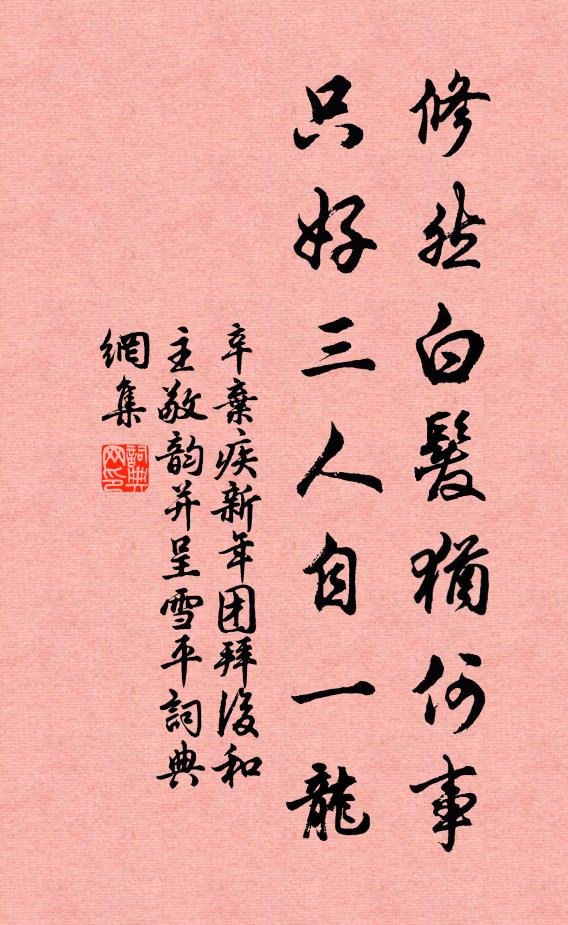 修然白髮猶何事
只好三人自一龍
辛棄疾新年团拜後和
主敬韵并呈雪平詞典
網集
詞典
网印